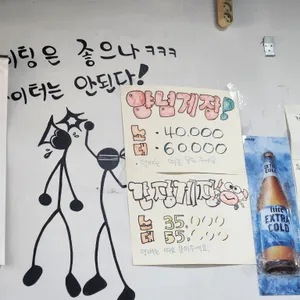 이팅은 좋으나 ㅋㅋㅋ
이터는 안된다!
양념게장?
노 : 40000
대 : 60000
간장게장
노 35.000
대 55.000
EXTRA
COLD